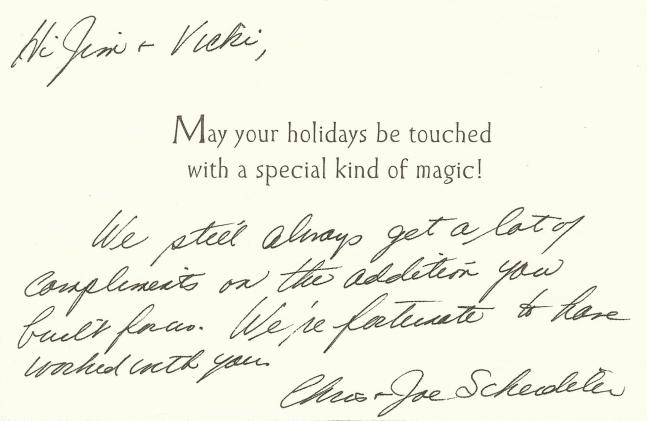 Hi Jim + Vicki,
May your holidays be touched
with a special kind of magic!
We still always get a lot of
compliments on the addition you
built for us. We're fortunate to have
worked with you.
Chris + Joe